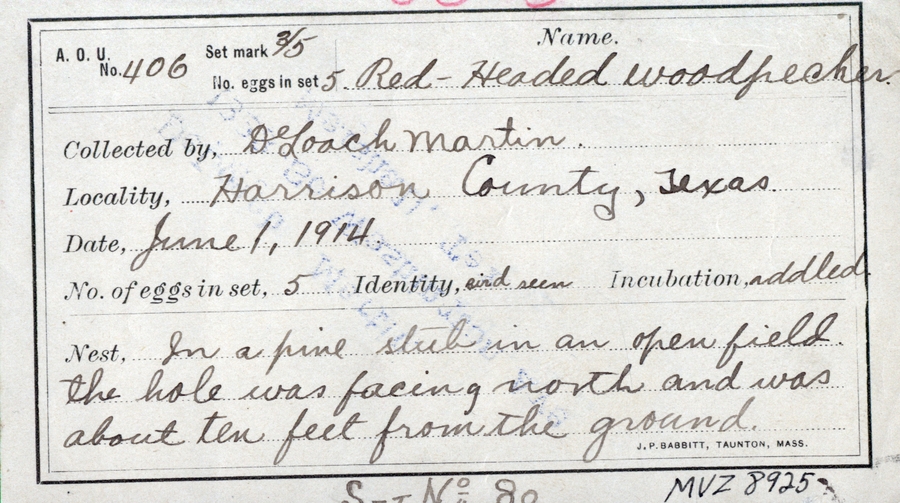 Name.
A. O. U. No. 406 Set mark 3/5
No. eggs in set 5. Red-Headed woodpecker.
Collected by, DeLoach Martin.
Locality, Harrison County, Texas.
Date, June 1, 1914
No. of eggs in set, 5 Identity, bird seen Incubation, addled.
Nest, In a pine stub in an open field.
the hole was facing north and was
about ten feet from the ground.
J. P. BABBITT, TAUNTON, MASS.
Set No 80
MVZ 8925